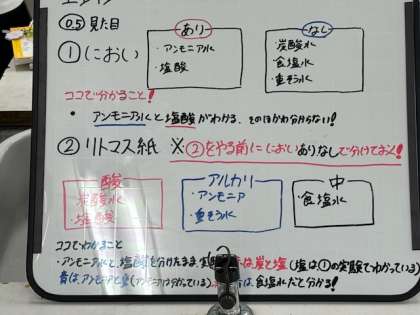 0.5 見た目
① におい
あり
・アンモニア水
・塩酸
なし
・炭酸水
・食塩水
・重そう水
ココで分かること!
・アンモニア水と塩酸がわかる、そのほかわ分らない!
② リトマス紙 ※②をやる前ににおいありなしで分けておく!
酸
・炭酸水
・塩酸
アルカリ
・アンモニア
・重そう水
中
・食塩水
ココでわかること
・アンモニア水と塩酸を分けたまま、実 は炭と塩(塩は①の実験でわかっている)
青は、アンモニアと重(アンモニアは分かっている) は食塩水だと分かる!